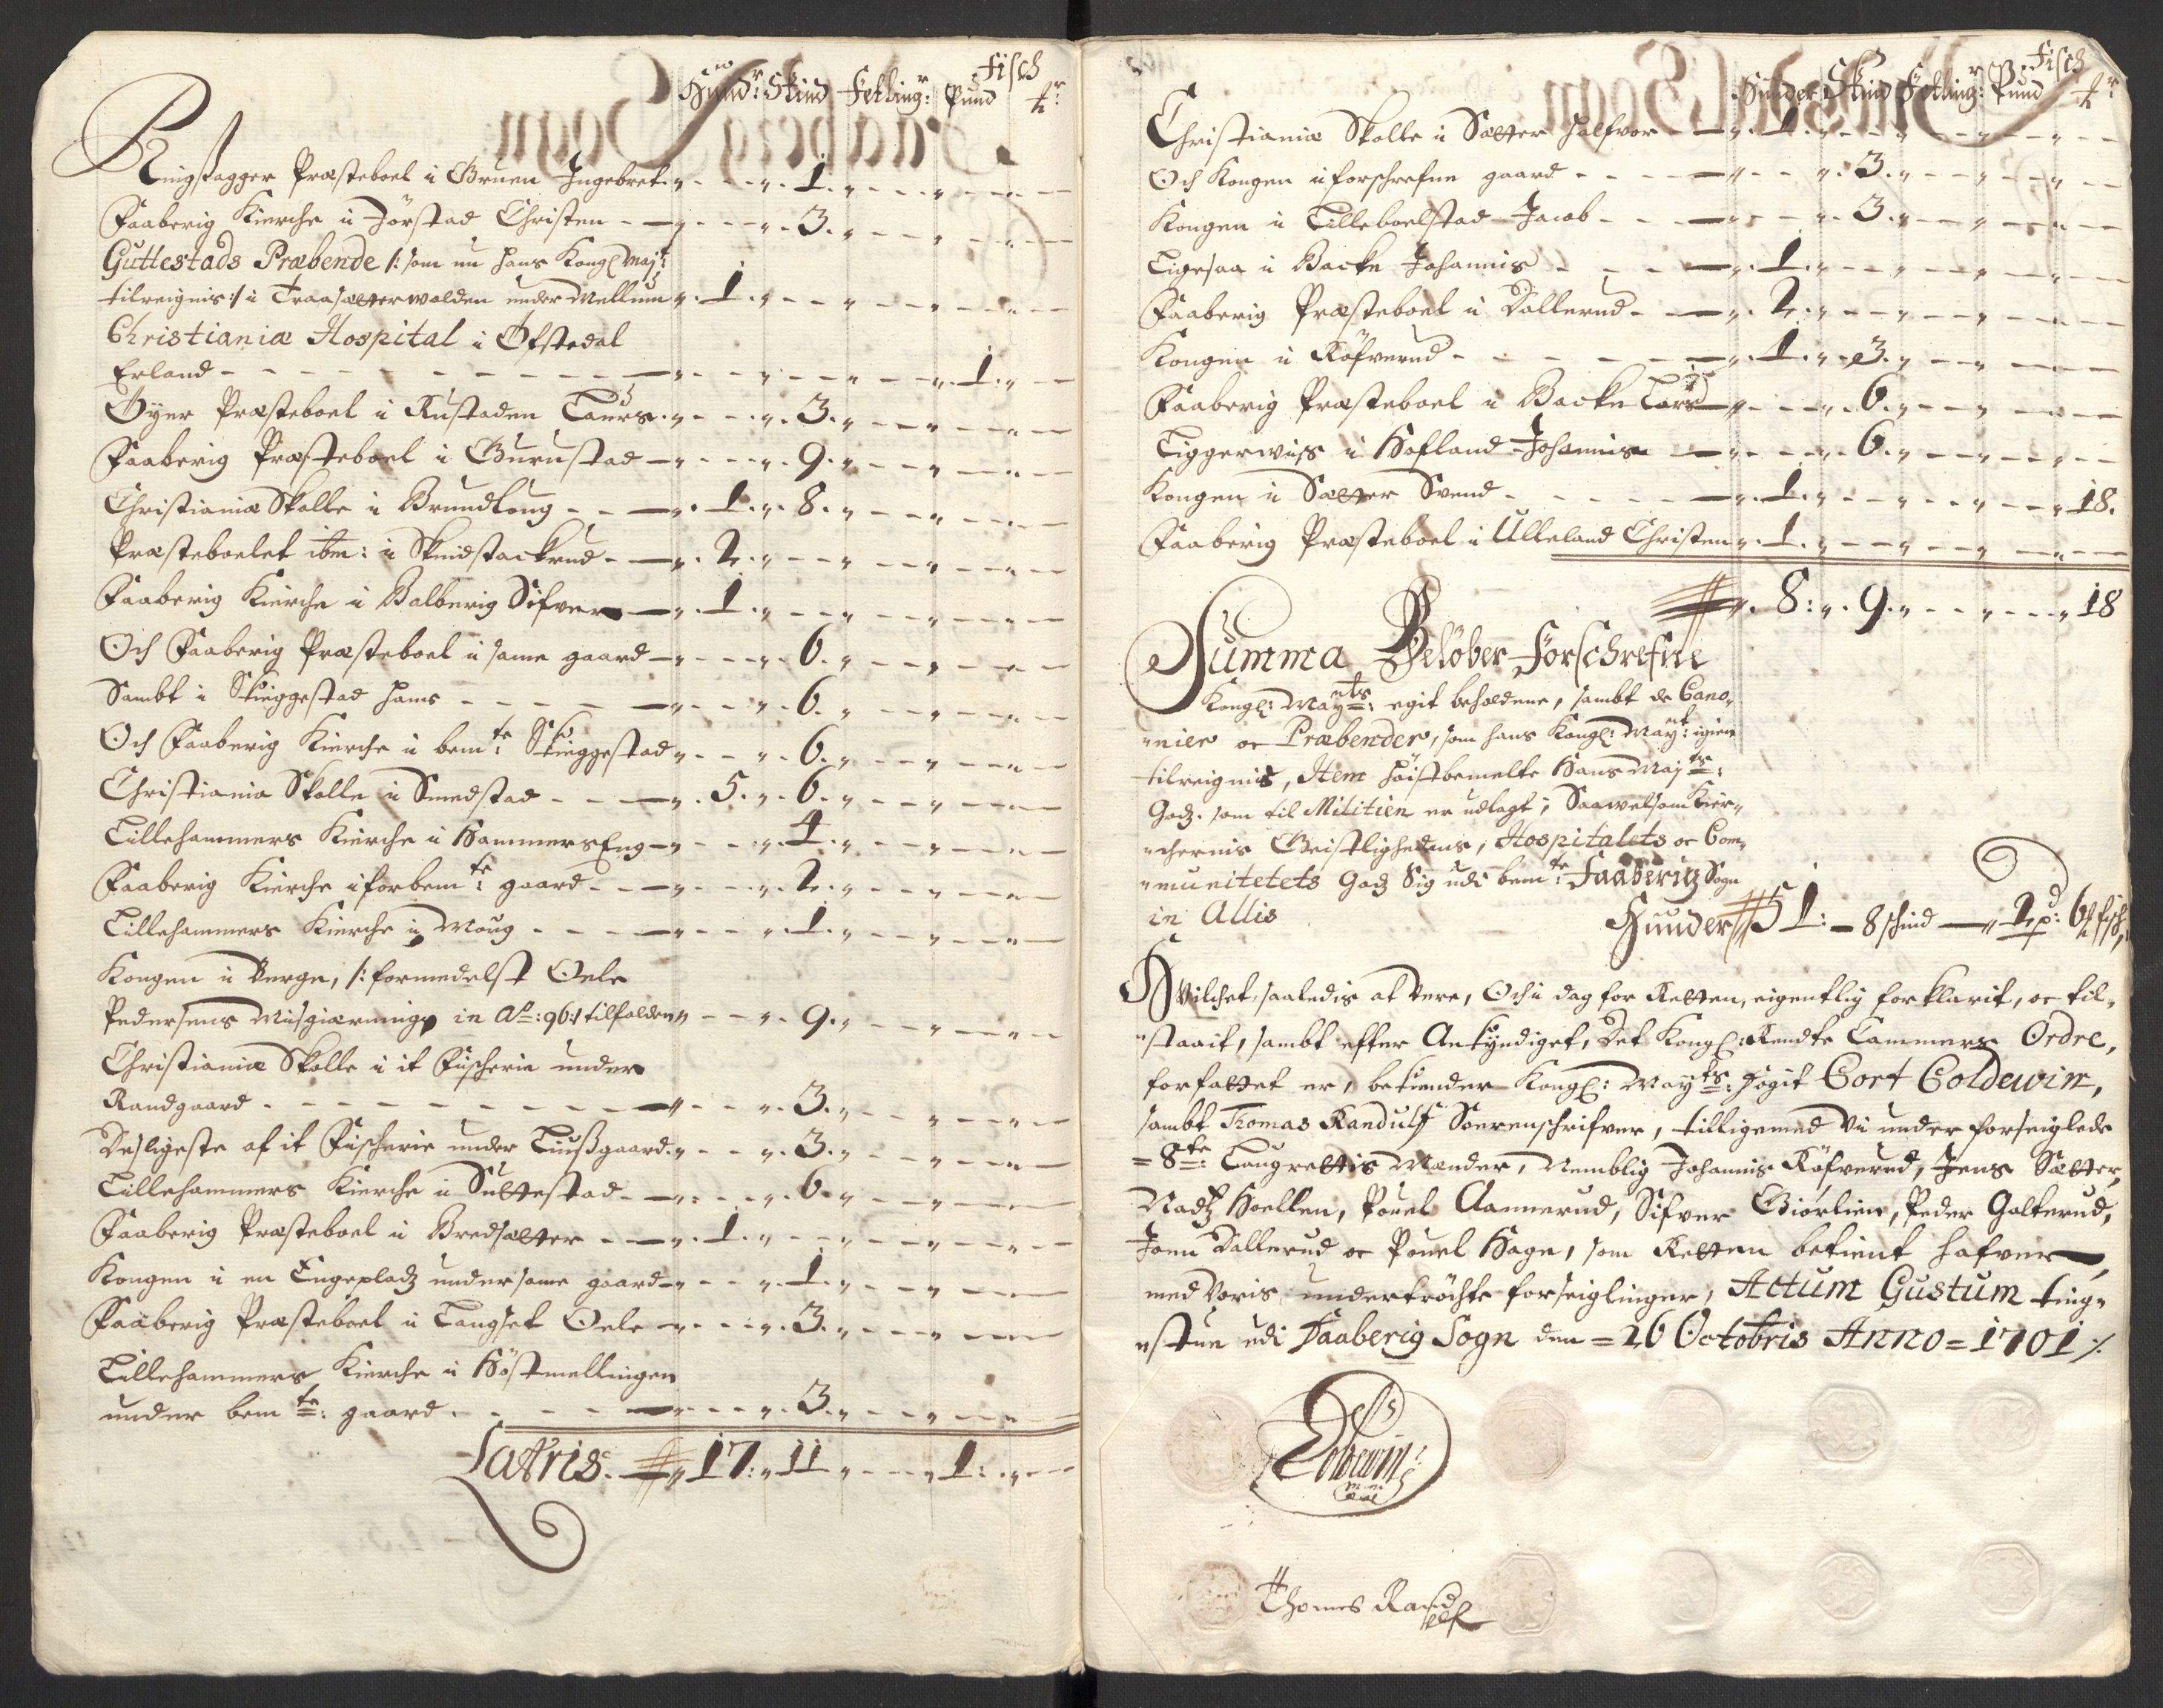 Hund:r Skind Fetling:r Pund Fisch ℔r
Ringsagger Præsteboel i Bruen Ingebret „ - - „ 1. „ - - „ - - „ - -
Faaberig Kierche i Jörstad Christen - - „ - - „ 3. „ - - „ - - „ - -
Guttestads Præbende /: som nu hans Kongl Maj:t
tilreignis :/ i Traasætterwolden under Mellum „ 1. „ - - „ - - „ - -
Christianiæ Hospital i Ofstedal
Erland - - - - - - „ - - „ - - „ - - „ 1. „ - -
Öyer Præsteboel i Rustaden Laurs „ - - „ 3. „ - - „ - - „ - -
Faaberig Præsteboel i Burustad - „ - - „ 9. „ - - „ - - „ - -
Christianiæ Skolle i Brundlong - - „ 1. „ 8. „ - - „ - - „ - -
Præsteboelet ibm: i Skeidstackrud - - „ 2. „ - - „ - - „ - -
Faaberig Kierche i Balberig Sifver - „ 1. „ - - „ - - „ - -
Och Faaberig Præsteboel i same gaard - „ - - „ 6. „ - - „ - -
Sambt i Skieggestad Hans - - - - „ - - „ 6. „ - - „ - -
Och Faaberig Kierche i bem:te Skieggestad „ - - „ 6. „ - - „ - -
Christiania Skolle i Smedstad - - - „ 5. „ 6. „ - - „ - -
Lillehammers Kierche i HammersEng - „ - - „ 4. „ - - „ - -
Faaberig Kierche i forbem:te gaard - - „ - - „ 2. „ - - „ - -
Lillehammers Kierche i Moug - - - „ - - „ 1. „ - - „ - -
Kongen i Berge, /: formedelst Oele
Pedersens Misgierning in Ao: 96 :/ tilfalden „ - - „ 9. „ - - „ - -
Christianiæ Skolle i it Fischerie under
Randgaard - - - - - - - „ - - „ 3. „ - - „ - -
Desligeste af it Fischerie under Liusgaard „ - - „ 3. „ - - „ - -
Lillehammers Kierche i Suttestad - - „ - - „ 6. „ - - „ - -
Faaberig Præsteboel i Bredsætter - - „ 1. „ - - „ - - „ - -
Kongen i en Engepladz under same gaard - „ - - „ 1. „ - - „ - -
Faaberig Præsteboel i Langset Oele - „ - - „ 3. „ - - „ - -
Lillehammers Kierche i Höstmellingen
under bem:te gaard - - - - „ - - „ 3. „ - - „ - -
Latris. - „ 17: „ 11 „ - - „ 1: „ - -
Hunder Skind Fetling:r Pund Fisch ℔r
Christianiæ Skolle i Sætter Halfvor - „ 1. „ - - „ - - „ - -
Och Kongen i forschrefne gaard - - - „ - - „ 3. „ - - „ - -
Kongen i Lilleboelstad Jacob - - - „ - - „ 3. „ - - „ - -
Ligesaa i Backe Johannis - - - „ 1. „ - - „ - - „ - -
Faaberig Præsteboel i Dallerud - - „ 2. „ - - „ - - „ - -
Kongen i Röfverud - - - - - „ 1. „ 3. „ - - „ - -
Faaberig Præsteboel i Backe Lars - „ - - „ 6. „ - - „ - -
Liggerwiis i Hofland Johannis - „ - - „ 6. „ - - „ - -
Kongen i Sætter Svend - - - - „ 1. „ - - „ - - „ 18.
Faaberig Præsteboel i Ulleland Christen „ 1. „ - - „ - - „ - -
„ 8: „ 9. „ - - „ - - „ 18
Summa Belöber Forschrefne
Kongl: Mayts: egit beholdene, sambt de Cano„
„nier oc Præbender, som hans Kongl: Mayt: igien
tilreignis, Item höistbemelte Hans Majts:
Godz. som til Militien er udlagt; Saawelsom Kier„
„chernis Geistlighedens, Hospitalets oc Com„
„munitetets Godz Sig udi bem:te Faaberig Sogn
in Allis Hunder 51: - 8 schind - „ 2 pd: 6 ℔ fisch,
Hvilchet, saaledis at vere, Och i dag for Retten, eigentlig forklarit, oc til„
„staait, sambt effter Ankyndiget, Det Kongl: Rendte Cammers Ordre,
forfattet er, bekiender Kongl: Mayts: fogit Cort Coldewin,
sambt Tomas Randulf Sorenschrifver, tilligemed Vii under forseiglede
= 8te: Laugrettis Mænder, Nemblig Johannis Röfverud, Jens Sætter,
Madtz Hoellen, Pouel Aannerud, Sifver Giörlien, Peder Galterud,
Joen Dallerud oc Pouel Hage, som Retten betient hafver,
med Voris undertröchte forseiglinger, Actum Gustum ting„
„stue udi Faaberig Sogn den = 26 Octobris Anno = 1701 ./.
Coldewin
Thomes Randulf